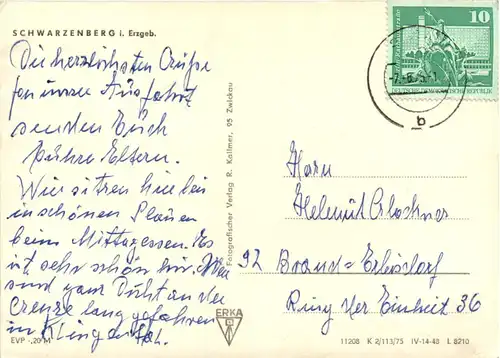 SCHWARZENBERG i. Erzgeb.
Die herzlichsten Grüße
von unserer Ausfahrt
senden Euch
Eltern.
Wir sitzen hier bei
in schönen Plauen
beim Mittagessen. Es
ist sehr schön hier. Wir
sind ganz dicht an der
Grenze lang gefahren
in Klingenthal.
EVP -,20 M
Fotografischer Verlag R. Kallmer, 95 Zwickau
ERKA
10
DEUTSCHE DEMOKRATISCHE REPUBLIK
b
Herrn
Helmut
92 Brand-Erbisdorf
Ring der Einheit 36
11208 K 2/113/75 IV-14-48 L 8210